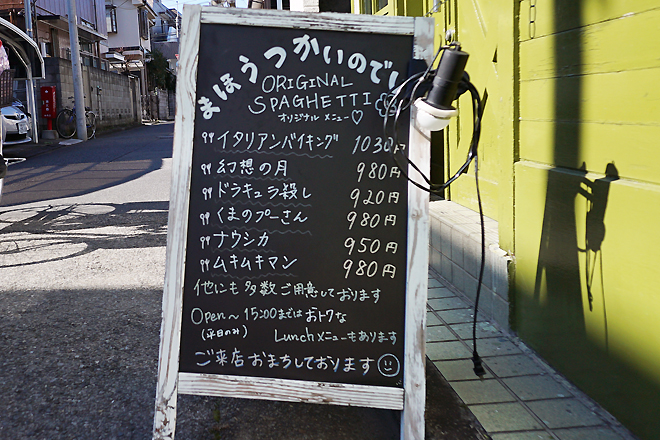 まほうつかいのでし
ORIGINAL
SPAGHETTI
オリジナル メニュー♡
イタリアンバイキング 1030円
幻想の月 980円
ドラキュラ殺し 920円
くまのプーさん 980円
ナウシカ 950円
ムキムキマン 980円
他にも多数ご用意しております
Open〜15:00まではおトクな
(平日のみ) Lunchメニューもあります
ご来店おまちしております☺